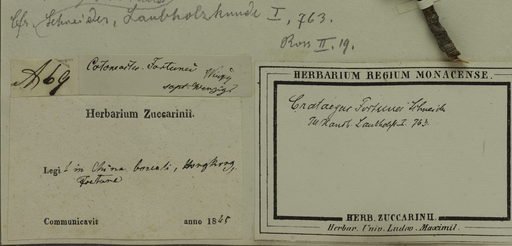 Cfr. Schneider, Laubholzkunde I, 763.
Ron II. 19.
A 69
Cotoneaster Fortunei
sept. Wenzig
Herbarium Zuccarinii.
Legit in China boreali, Hongkong,
Fortune
Communicavit anno 1845
HERBARIUM REGIUM MONACENSE.
Crataegus Fortunei Schneider
Handb. Laubholzk. I. 763.
HERB. ZUCCARINII.
Herbar. Univ. Ludov. Maximil.